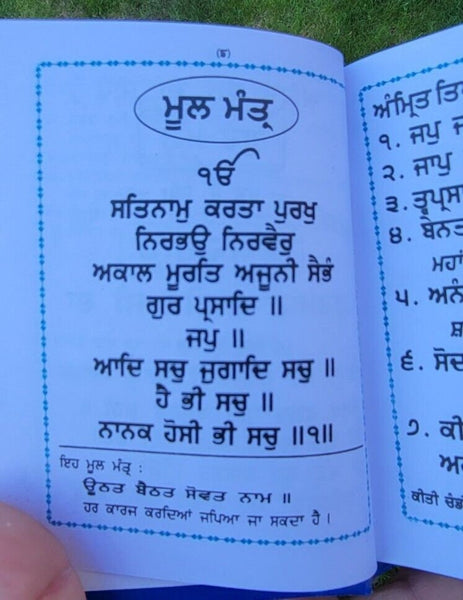 (ੳ)
ਮੂਲ ਮੰਤ੍ਰ
ੴ
ਸਤਿਨਾਮੁ ਕਰਤਾ ਪੁਰਖੁ
ਨਿਰਭਉ ਨਿਰਵੈਰੁ
ਅਕਾਲ ਮੂਰਤਿ ਅਜੂਨੀ ਸੈਭੰ
ਗੁਰ ਪ੍ਰਸਾਦਿ ॥
ਜਪੁ ॥
ਆਦਿ ਸਚੁ ਜੁਗਾਦਿ ਸਚੁ ॥
ਹੈ ਭੀ ਸਚੁ ॥
ਨਾਨਕ ਹੋਸੀ ਭੀ ਸਚੁ ॥੧॥
ਇਹ ਮੂਲ ਮੰਤ੍ਰ :
ਊਠਤ ਬੈਠਤ ਸੋਵਤ ਨਾਮ ॥
ਹਰ ਕਾਰਜ ਕਰਦਿਆਂ ਜਪਿਆ ਜਾ ਸਕਦਾ ਹੈ ।
ਅੰਮ੍ਰਿਤ
੧. ਜਪੁ
੨. ਜਾਪੁ
੩.
੪.
ਮਹਾਂ
੫.
੬.
੭.
ਕੀਤੀ